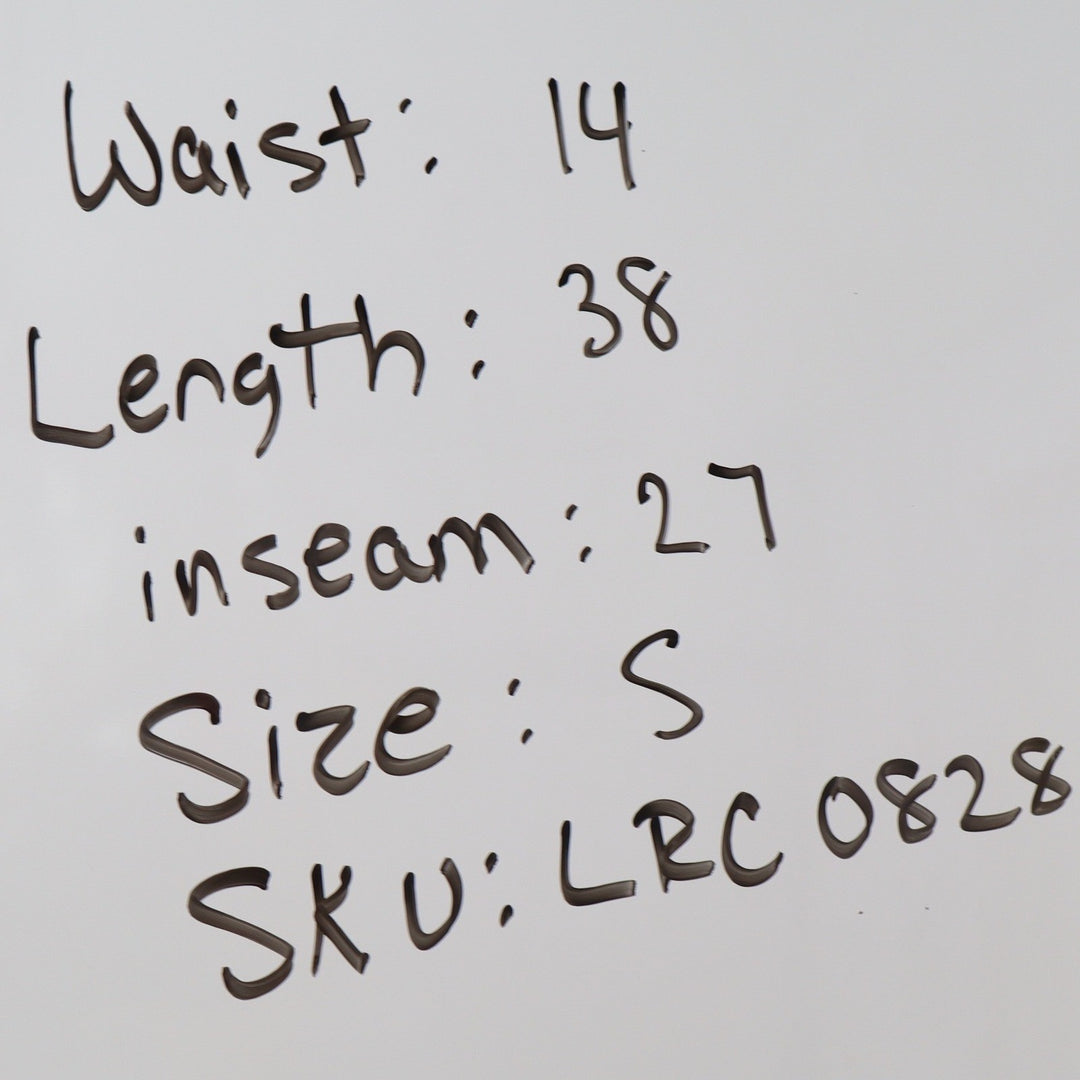 Waist: 14
Length: 38
inseam: 27
Size: S
SKU: LRC 0828